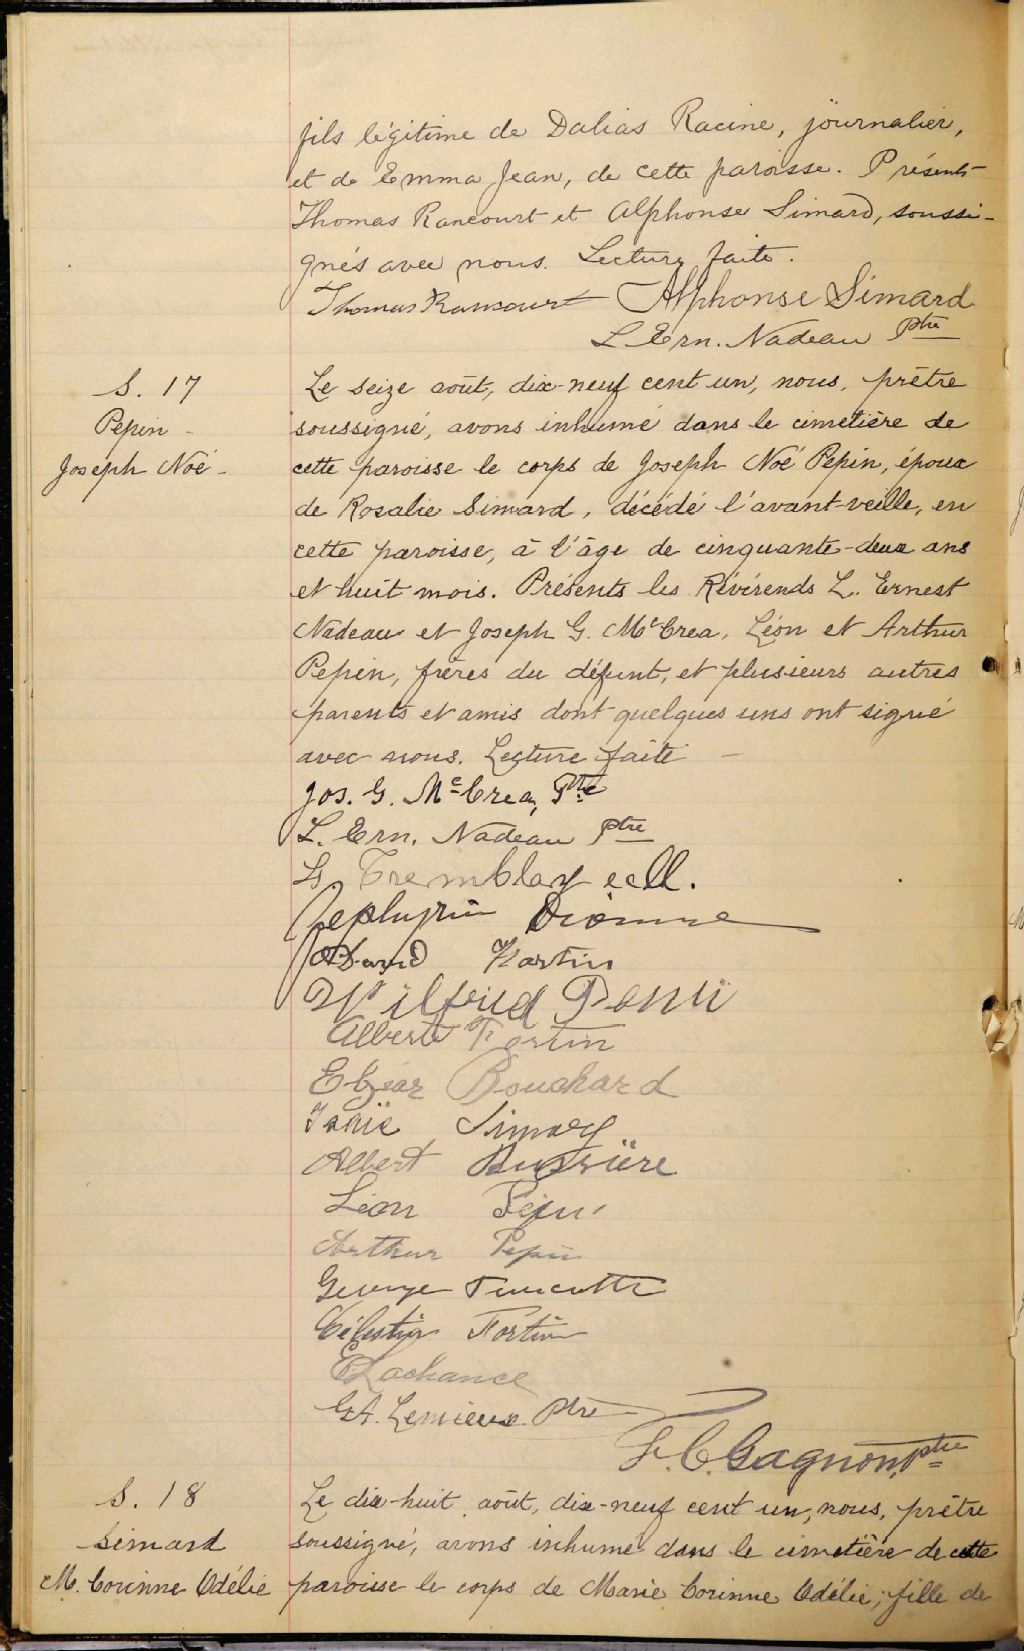 fils légitime de Dalias Racine, journalier,
et de Emma Jean, de cette paroisse. Présents
Thomas Rancourt et Alphonse Simard, soussi-
gnés avec nous. Lecture faite.
Thomas Rancourt Alphonse Simard
L Ern. Nadeau Ptre
S. 17
Pepin
Joseph Noé
Le seize août, dix-neuf cent un, nous, prêtre
soussigné, avons inhumé dans le cimetière de
cette paroisse le corps de Joseph Noé Pepin, époux
de Rosalie Simard, décédé l'avant-veille, en
cette paroisse, à l'âge de cinquante-deux ans
et huit mois. Présents les Révérends L. Ernest
Nadeau et Joseph G. McCrea, Léon et Arthur
Pepin, frères du défunt, et plusieurs autres
parents et amis dont quelques uns ont signé
avec nous. Lecture faite
Jos. G. McCrea, Ptre
L. Ern. Nadeau Ptre
Ls Tremblay eccl.
Zephyrin Dionne
Fortin
Wilfrid
Albert Fortin
Elzéar Bouchard
Simard
Albert Bussière
Léon Pépin
Arthur Pepin
George Turcotte
Célestin Fortin
E Lachance
G A. Lemieux Ptre
F. C. Gagnon, Ptre
S. 18
Simard
M. Corinne Odélie
Le dix-huit août, dix-neuf cent un, nous, prêtre
soussigné, avons inhumé dans le cimetière de cette
paroisse le corps de Marie Corinne Odélie, fille de